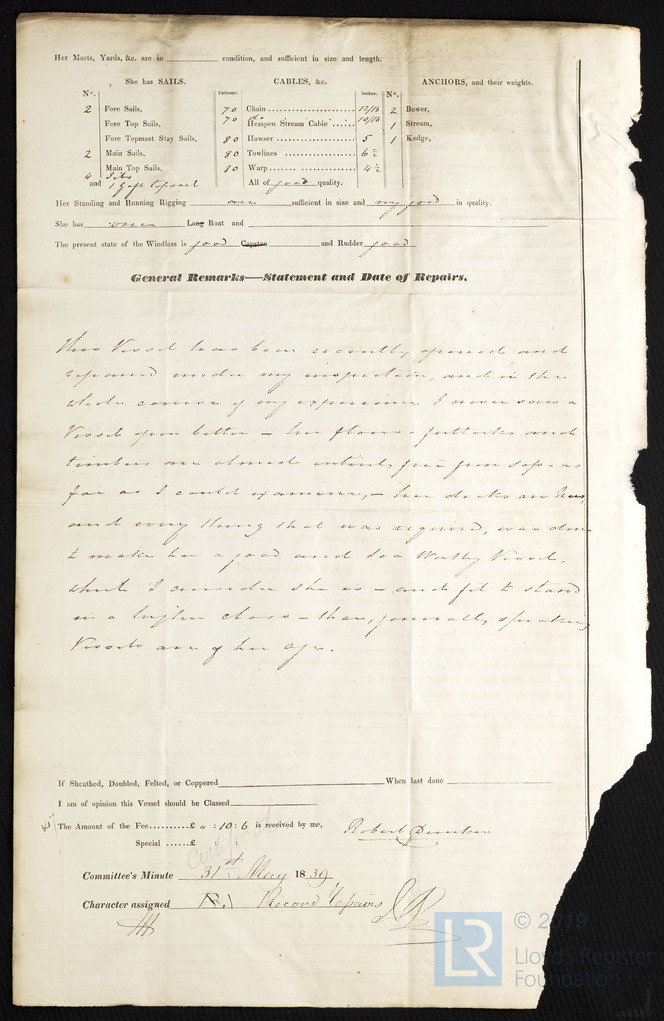 Her Masts, Yards, &c. are in ______ condition, and sufficient in size and length.
She has SAILS. CABLES, &c. ANCHORS, and their weights.
N°. Fathoms. Inches. N°.
2 Fore Sails, 70 Chain 12/16 2 Bower,
Fore Top Sails, 70 Hempen Stream Cable 10/16 1 Stream,
Fore Topmast Stay Sails, 80 Hawser 5 1 Kedge,
2 Main Sails, 80 Towlines 6½
Main Top Sails, 80 Warp 4½
4 Jibs
and 1 Gaff topsail All of good quality.
Her Standing and Running Rigging are sufficient in size and very good in quality.
She has one Long Boat and
The present state of the Windlass is good Capstan and Rudder good
General Remarks—Statement and Date of Repairs.
This Vessel has been recently opened and
repaired under my inspection, and in the
whole course of my experience I never saw a
Vessel open better – her floors – futtocks and
timbers are almost entirely free from sap – as
far as I could examine, – her decks are new,
and every thing that was required, was done
to make her a good and Sea Worthy Vessel.
which I consider she is – and fit to stand
in a higher class – than, generally speaking
Vessels are of her age.
If Sheathed, Doubled, Felted, or Coppered When last done
I am of opinion this Vessel should be Classed
The Amount of the Fee £ „ : 10 : 6 is received by me,
Robert Duncan
Special £ : :
Committee's Minute 31st May 1839
Character assigned Record Repairs
LR © 2019
Lloyd's Register
Foundation